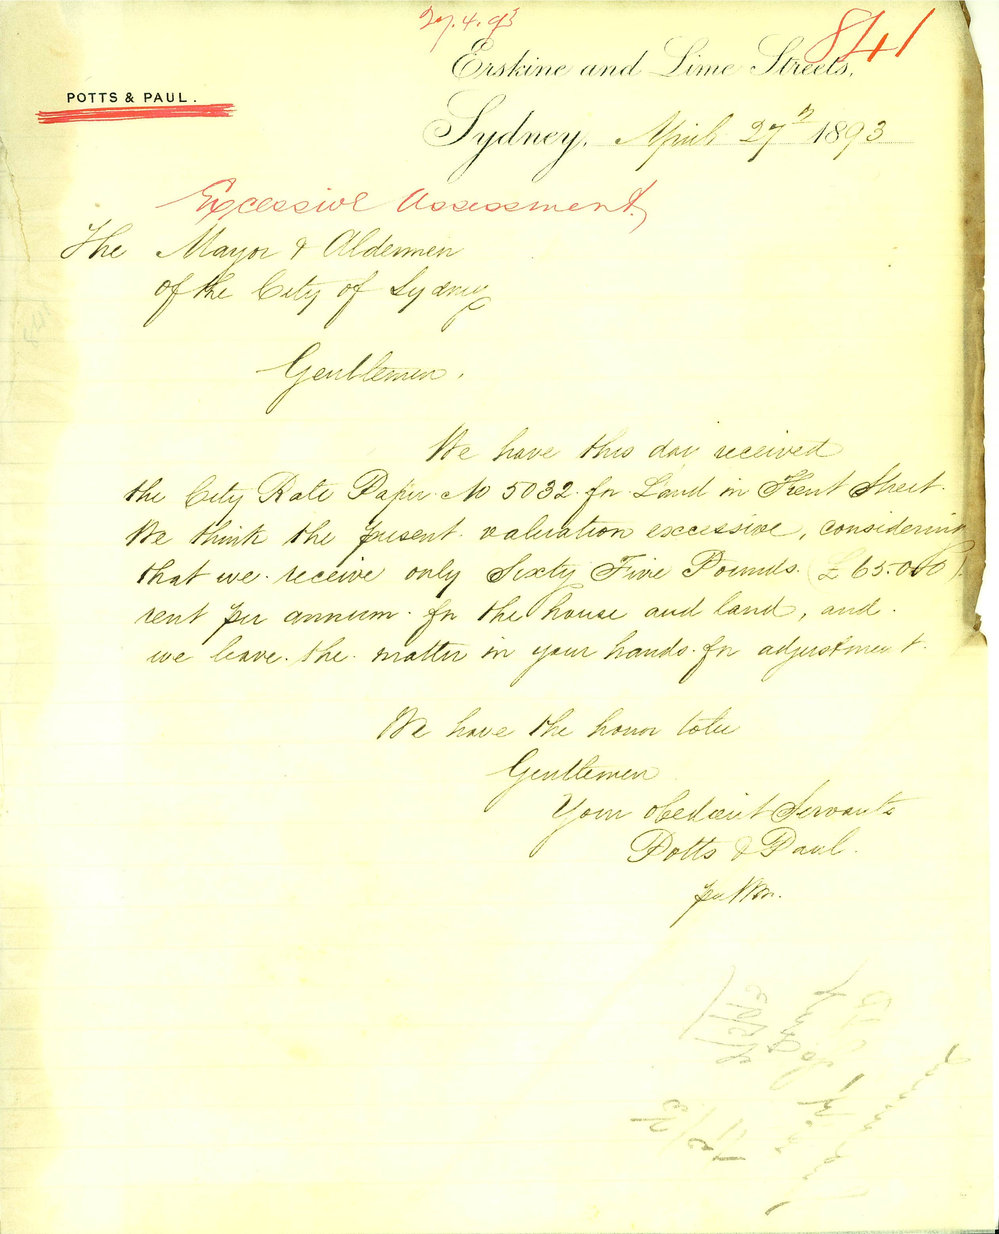 27.4.93
841
Erskine and Lime Streets,
POTTS & PAUL.
Sydney, April 27th 1893
Excessive Assessment
The Mayor & Aldermen
of the City of Sydney
Gentlemen.
We have this day received
the City Rate Paper No 5032 for Land in Kent Street.
We think the present valuation excessive, considering
that we receive only Sixty Five Pounds. (£65.0.0)
rent per annum for the house and land, and
we leave the matter in your hands for adjustment.
We have the honor to be
Gentlemen
Your obedient Servants
Potts & Paul.
per